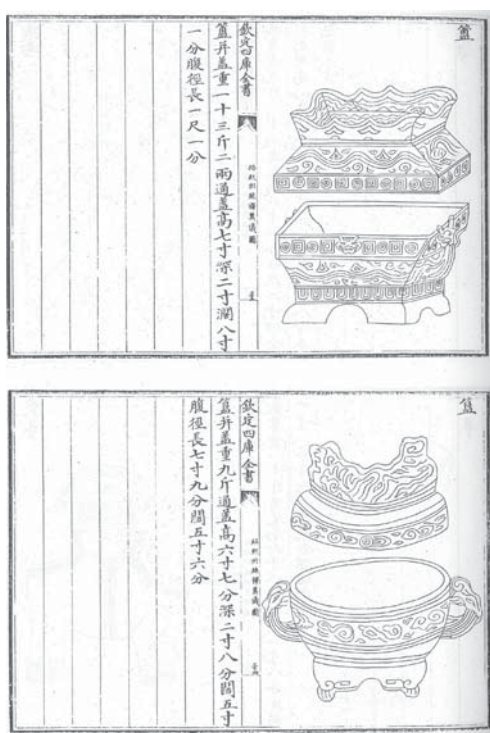 簠
欽定四庫全書
簠并蓋重一十三斤二兩通蓋高七寸深二寸濶八寸
一分腹徑長一尺一分
簋
欽定四庫全書
簋并蓋重九斤通蓋高六寸七分深二寸八分闊五寸
腹徑長七寸九分闊五寸六分